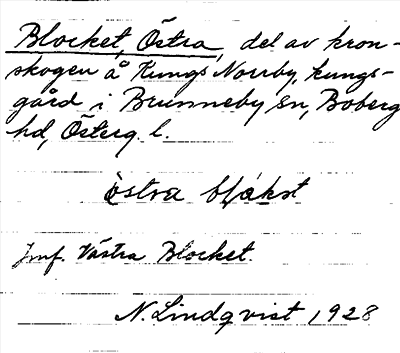 Blocket, Östra, del av kron-
skogen å Kungs Norrby, kungs-
gård i Brunneby sn, Boberg
hd, Österg. l.
östra blåkət
Jmf. Västra Blocket.
N. Lindqvist 1928